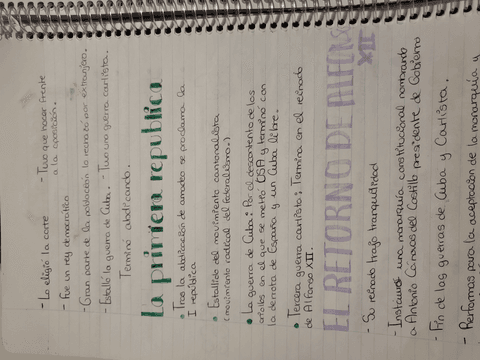 - Lo eligió la corte    - Tuvo que hacer frente
a la oposición.
- Fue un rey democrático
- Gran parte de la población lo rechazó por extranjero.
- Estalló la guerra de Cuba.  - Tuvo una guerra carlista.
Terminó abdicando.
la primera republica
• Tras la abdicación de amadeo se proclama la
I república
• Estallido del movimiento cantonalista
(movimiento radical del federalismo.)
• La guerra de Cuba: Por el descontento de los
criollos en el que se metió USA y terminó con
la derrota de España y un Cuba libre.
• Tercera guerra carlista: Termina en el reinado
de Alfonso XII.
EL RETORNO DE ALFONSO
XII
- Su reinado trajo tranquilidad
- una monarquía constitucional nombrando
a Antonio Cánovas del Castillo presidente de Gobierno
- Fin de las guerras de Cuba y Carlista.
- Performas para la aceptación de la monarquía y